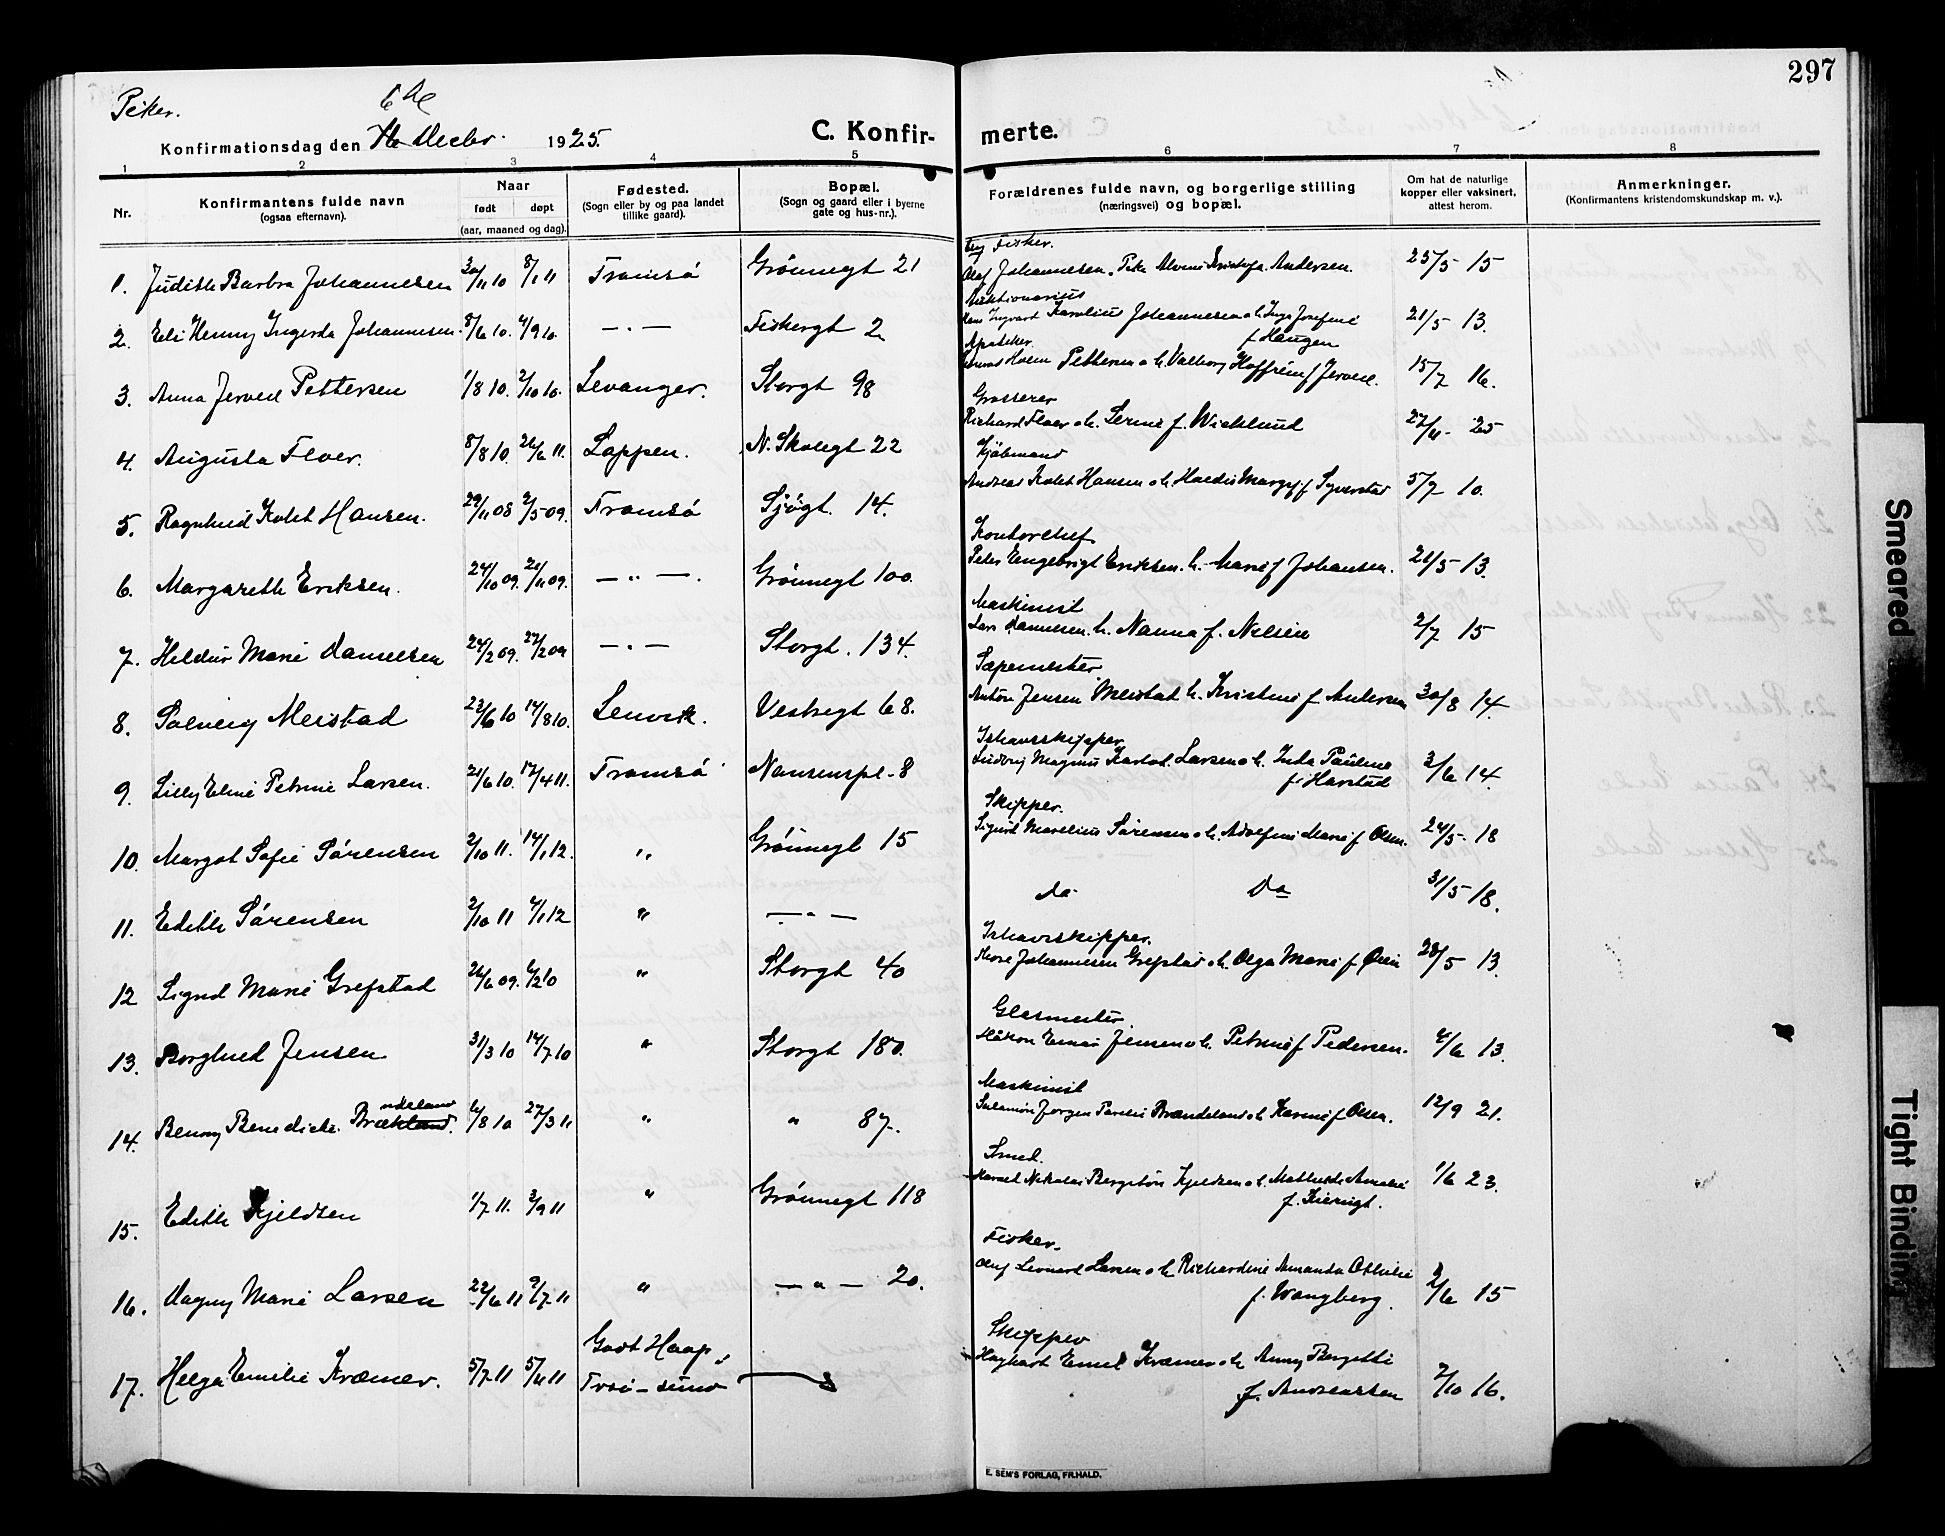 297
Piker.
6te
Konfirmationsdag den Decbr. 1925.
C. Konfir- merte.
1 2 3 4 5 6 7 8
Nr.
Konfirmantens fulde navn
(ogsaa efternavn).
Naar
født døpt
(aar, maaned og dag).
Fødested.
(Sogn eller by og paa landet
tillike gaard).
Bopæl.
(Sogn og gaard eller i byerne
gate og hus-nr.).
Forældrenes fulde navn, og borgerlige stilling
(næringsvei) og bopæl.
Om hat de naturlige
kopper eller vaksinert,
attest herom.
Anmerkninger.
(Konfirmantens kristendomskundskap m. v.).
Fisker.
1. Judith Barbra Johannesen 30/11 10 8/1 11 Tromsö Grönnegt 21 Olaf Johannesen. Andersen. 25/5 15
2. Eli Henny Ingerda Johannesen. 8/6 10. 4/9 10. — . — Fiskergt 2 Hans Ingvart Karolius Johannesen o h. Inga Josefine 21/5 13.
f Haugen
Apoteker.
3. Anna Jervell Pettersen 1/8 10. 2/10 10. Levanger. Storgt 98 Holm Pettersen o h. Valborg f Jervell. 15/7 16.
Grosserer
4. Augusta Floer. 8/8 10. 26/6 11. Loppen. N. Skolegt 22 Richard Floer o h. Serine f. Wicklund 27/11 - 25
Kjöbmand
5. Ragnhild Kolst Hansen. 29/11 08 2/5 09. Tromsö Sjögt. 14. Andreas Kolst Hansen o h. Margr. f 5/7 10.
Kontorchef
6. Margareth Eriksen. 24/10 09. 21/11 09. — „ — . Grönnegt 100. Peter Engebrigt Eriksen. h. Marie f Johansen. 21/5 13.
Maskinist
7. Hildur Marie Danielsen 24/2 09. 27/2 09 — . — Storgt. 134. Lars Danielsen. h. Nanna f. Nilsen 2/7 15
Sæpemester.
8. Solveig Meistad 23/6 10 14/8 10. Lenvik. Vestregt 68. Anton Jensen Meistad h. Kristine f Andersen 30/8 14.
Ishavsskipper
9. Lilly Eline Petrine Larsen. 21/6 10. 17/4 11. Tromsö Nansenspl. 8 Ludvig Magnus Larsen o h. Inda Pauline 3/6 14.
f. Harstad
Skipper.
10. Margot Sofie Sörensen 2/10 11. 14/1 12. „ Grönnegt 15 Sigurd Marelius Sörensen o h. Adolfine Marie f Olsen. 24/5 - 18
11. Edith Sörensen 2/10 11 4/1 12 " — „ — do Do 31/5 18.
Ishavsskipper.
12 Sigrid Marie Grefstad 26/6 09. " Storgt 40 Johannesen Grefstad o h. Olga Marie f 28/5 13.
Glasmester
13. Borghild Jensen 31/3 10 14/7 10 " Storgt 180. Håkon Einar Jensen o h. Petrine f Pedersen. 4/6 13.
Maskinist
14. Benny Benedicte Brækland. ndeland 6/8 10 27/3 11 " " 87. Salamon Jørgen Parelius Brandeland o h Karine f Olsen. 12/9 21.
Smed.
15. Edith Kjeldsen 1/7 11. 3/9 11 " Grönnegt 118 Nikolai Bergeton Kjeldsen o h. Mathilde Amalie 1/6 23.
Fisker.
16. Dagny Marie Larsen 22/6 11 9/7 11 " — „ — 20. Olaf Leonard Larsen o h Richardine Amanda Othilie 2/6 15
f. Wangberg.
Skipper
17. Helga Emilie Kræmer. 5/7 11 5/11 11 Godt Haap, Hagbart Emil Kræmer o h Anny Bergitte
Tro-sund f. Andreassen 2/10 16.
E. SEM'S FORLAG, FR.HALD.
Smeared
Tight Binding